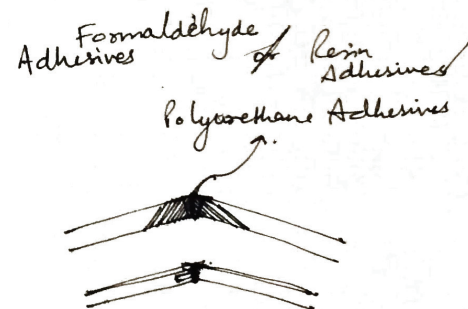 Formaldehyde
Adhesives or Resin
Adhesives
Polyurethane Adhesives